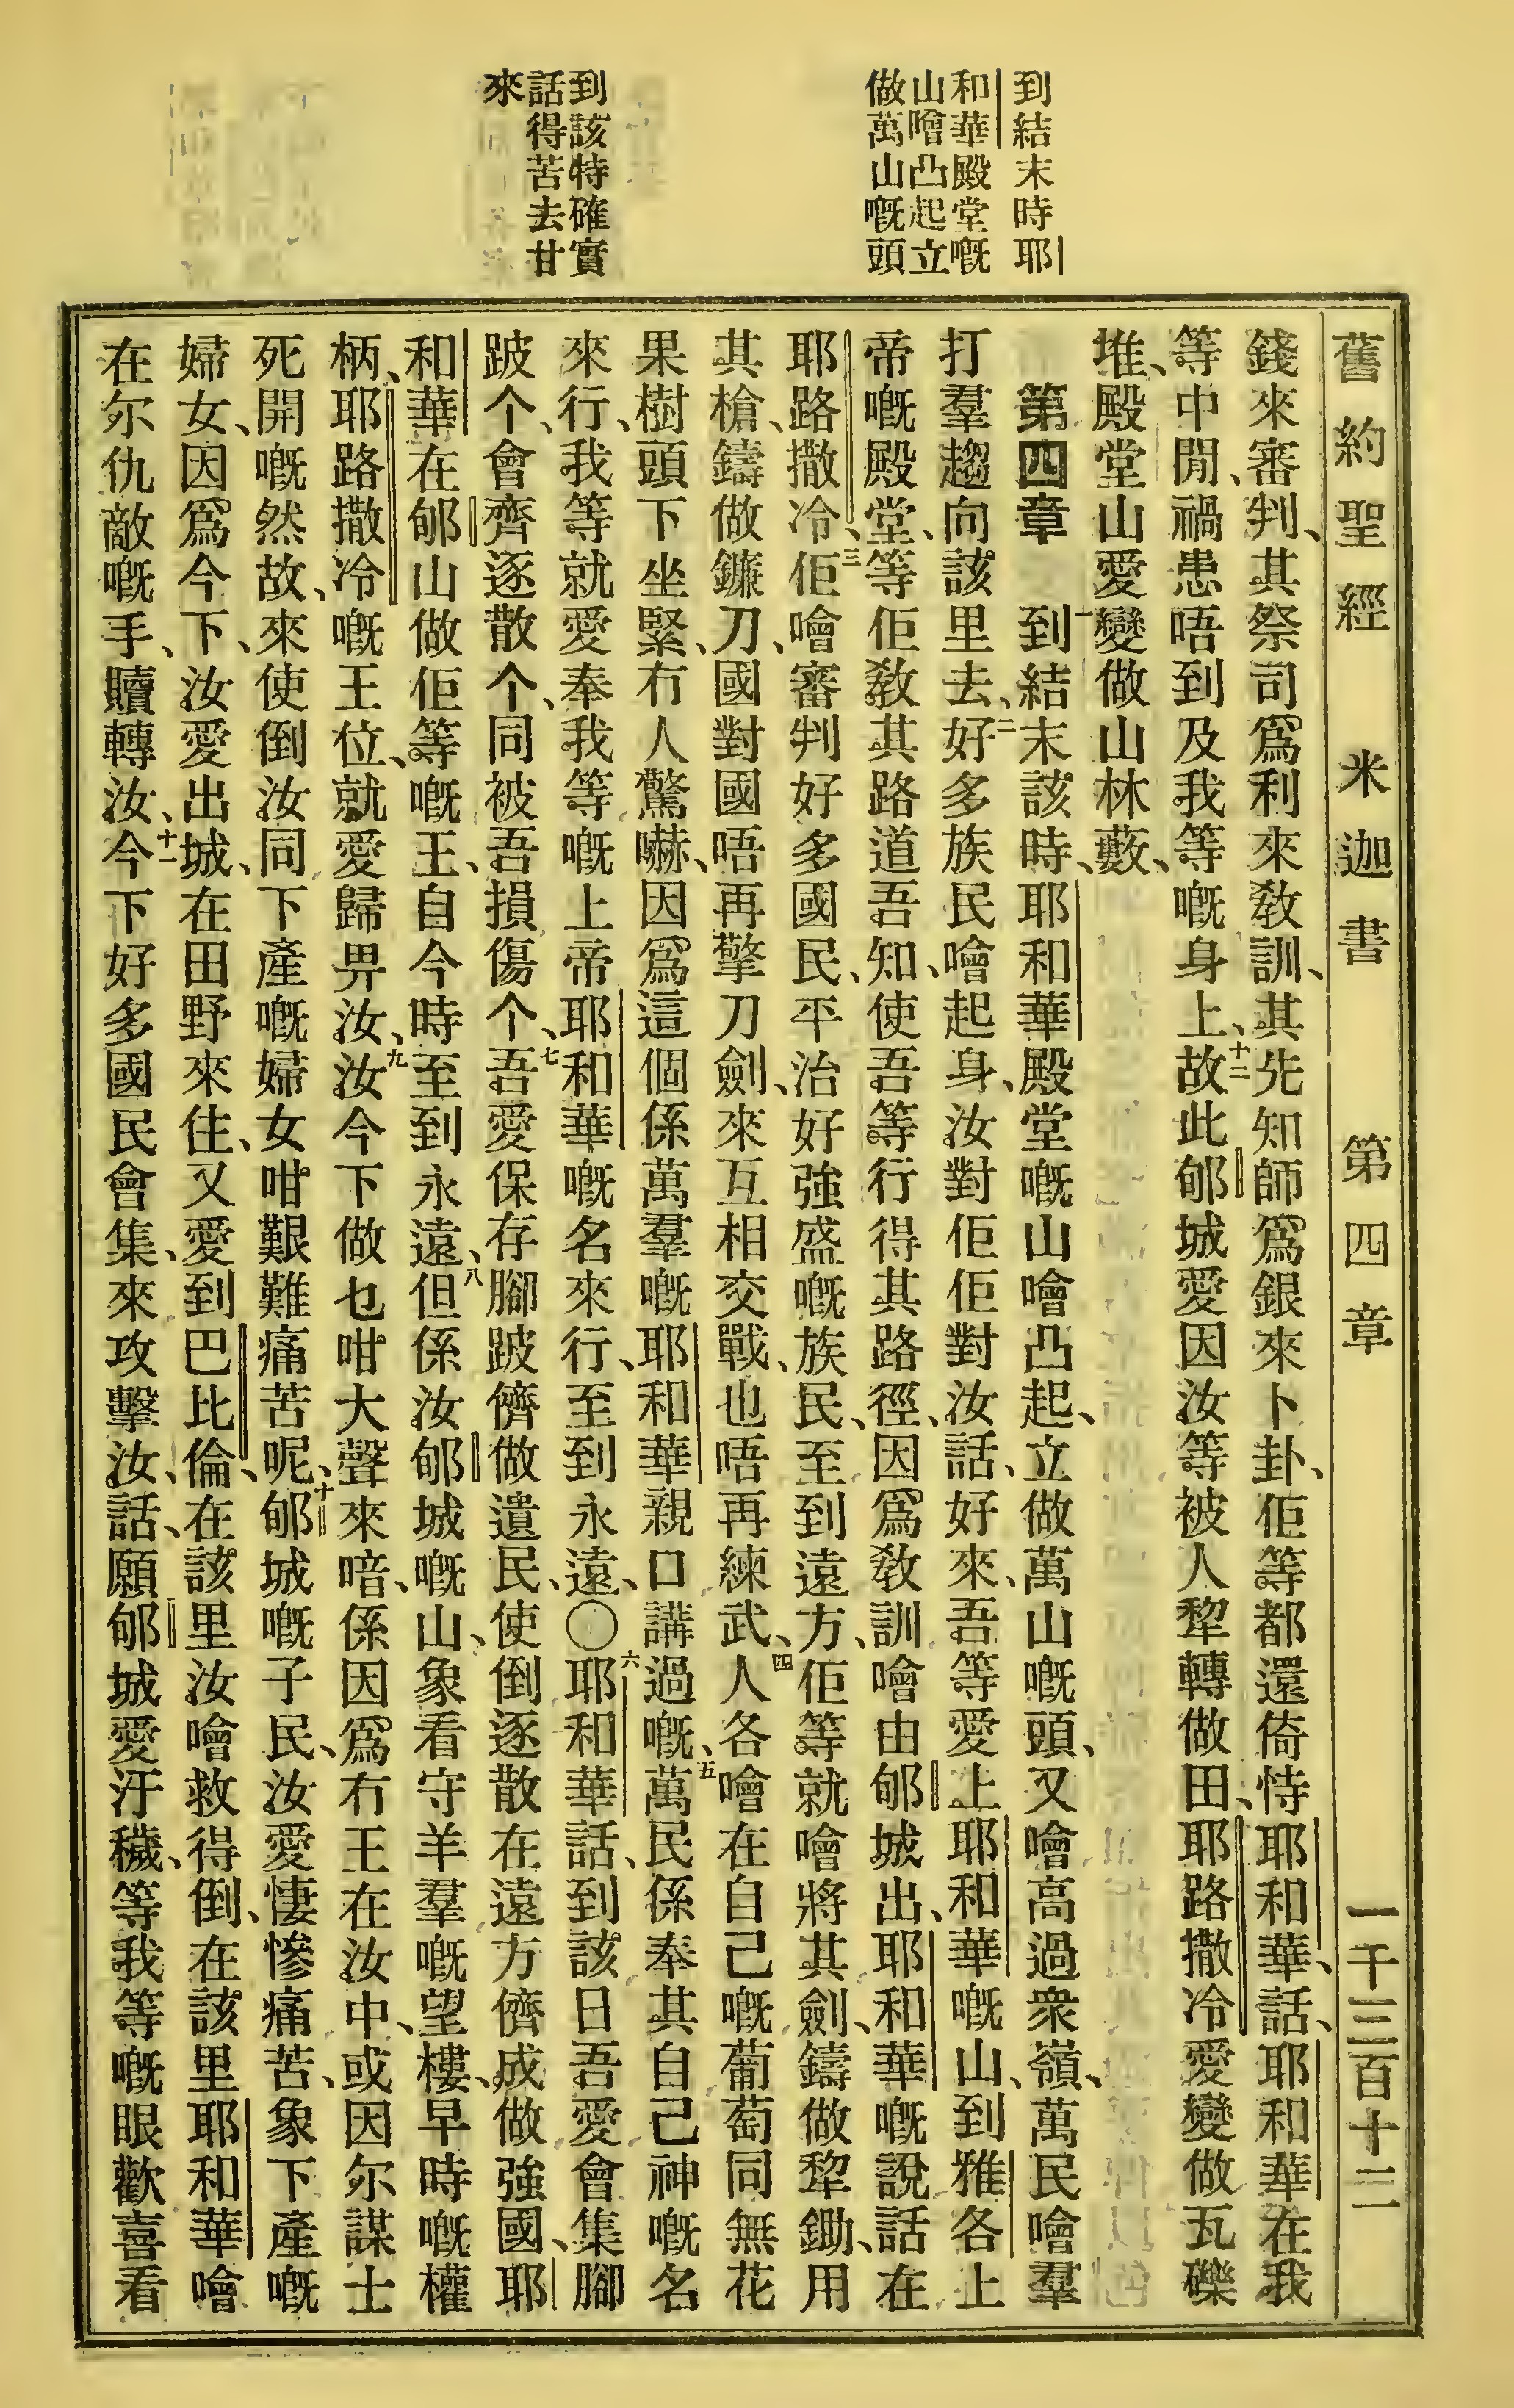 到結末時耶
和華殿堂嘅
山噲凸起立
做萬山嘅頭
到該特確實
話得苦去甘
來
舊約聖經 米迦書 第四章 一千三百十二
錢來審判、其祭司爲利來敎訓、其先知師爲銀來卜卦、佢等都還倚恃耶和華、話、耶和華在我
等中閒、禍患唔到及我等嘅身上、十二故此郇城愛因汝等被人犂轉做田、耶路撒冷愛變做瓦礫
堆、殿堂山愛變做山林藪、
第四章 一到結末該時、耶和華殿堂嘅山噲凸起、立做萬山嘅頭、又噲高過衆嶺、萬民噲羣
打羣趨向該里去、二好多族民噲起身、汝對佢佢對汝話、好來、吾等愛上耶和華嘅山、到雅各上
帝嘅殿堂、等佢敎其路道吾知、使吾等行得其路徑、因爲敎訓噲由郇城出、耶和華嘅說話在
耶路撒冷、三佢噲審判好多國民、平治好強盛嘅族民、至到遠方、佢等就噲將其劍、鑄做犂鋤、用
其槍、鑄做鐮刀、國對國唔再擎刀劍、來互相交戰、也唔再練武、四人各噲在自己嘅葡萄同無花
果樹頭下坐緊、冇人驚嚇、因爲這個係萬羣嘅耶和華親口講過嘅、五萬民係奉其自己神嘅名
來行、我等就愛奉我等嘅上帝耶和華嘅名來行、至到永遠、〇六耶和華話、到該日吾愛會集腳
跛个、會齊逐散个、同被吾損傷个、七吾愛保存腳跛儕做遺民、使倒逐散在遠方儕成做強國、耶
和華在郇山做佢等嘅王、自今時至到永遠、八但係汝郇城嘅山、象看守羊羣嘅望樓、早時嘅權
柄、耶路撒冷嘅王位、就愛歸畀汝、九汝今下做乜咁大聲來喑、係因爲冇王在汝中、或因尔謀士
死開嘅然故、來使倒汝同下產嘅婦女咁艱難痛苦呢、十郇城嘅子民、汝愛悽慘痛苦、象下產嘅
婦女、因爲今下、汝愛出城、在田野來住、又愛到巴比倫、在該里汝噲救得倒、在該里耶和華噲
在尔仇敵嘅手、贖轉汝、十一今下好多國民會集、來攻擊汝、話、願郇城愛汙穢、等我等嘅眼歡喜看